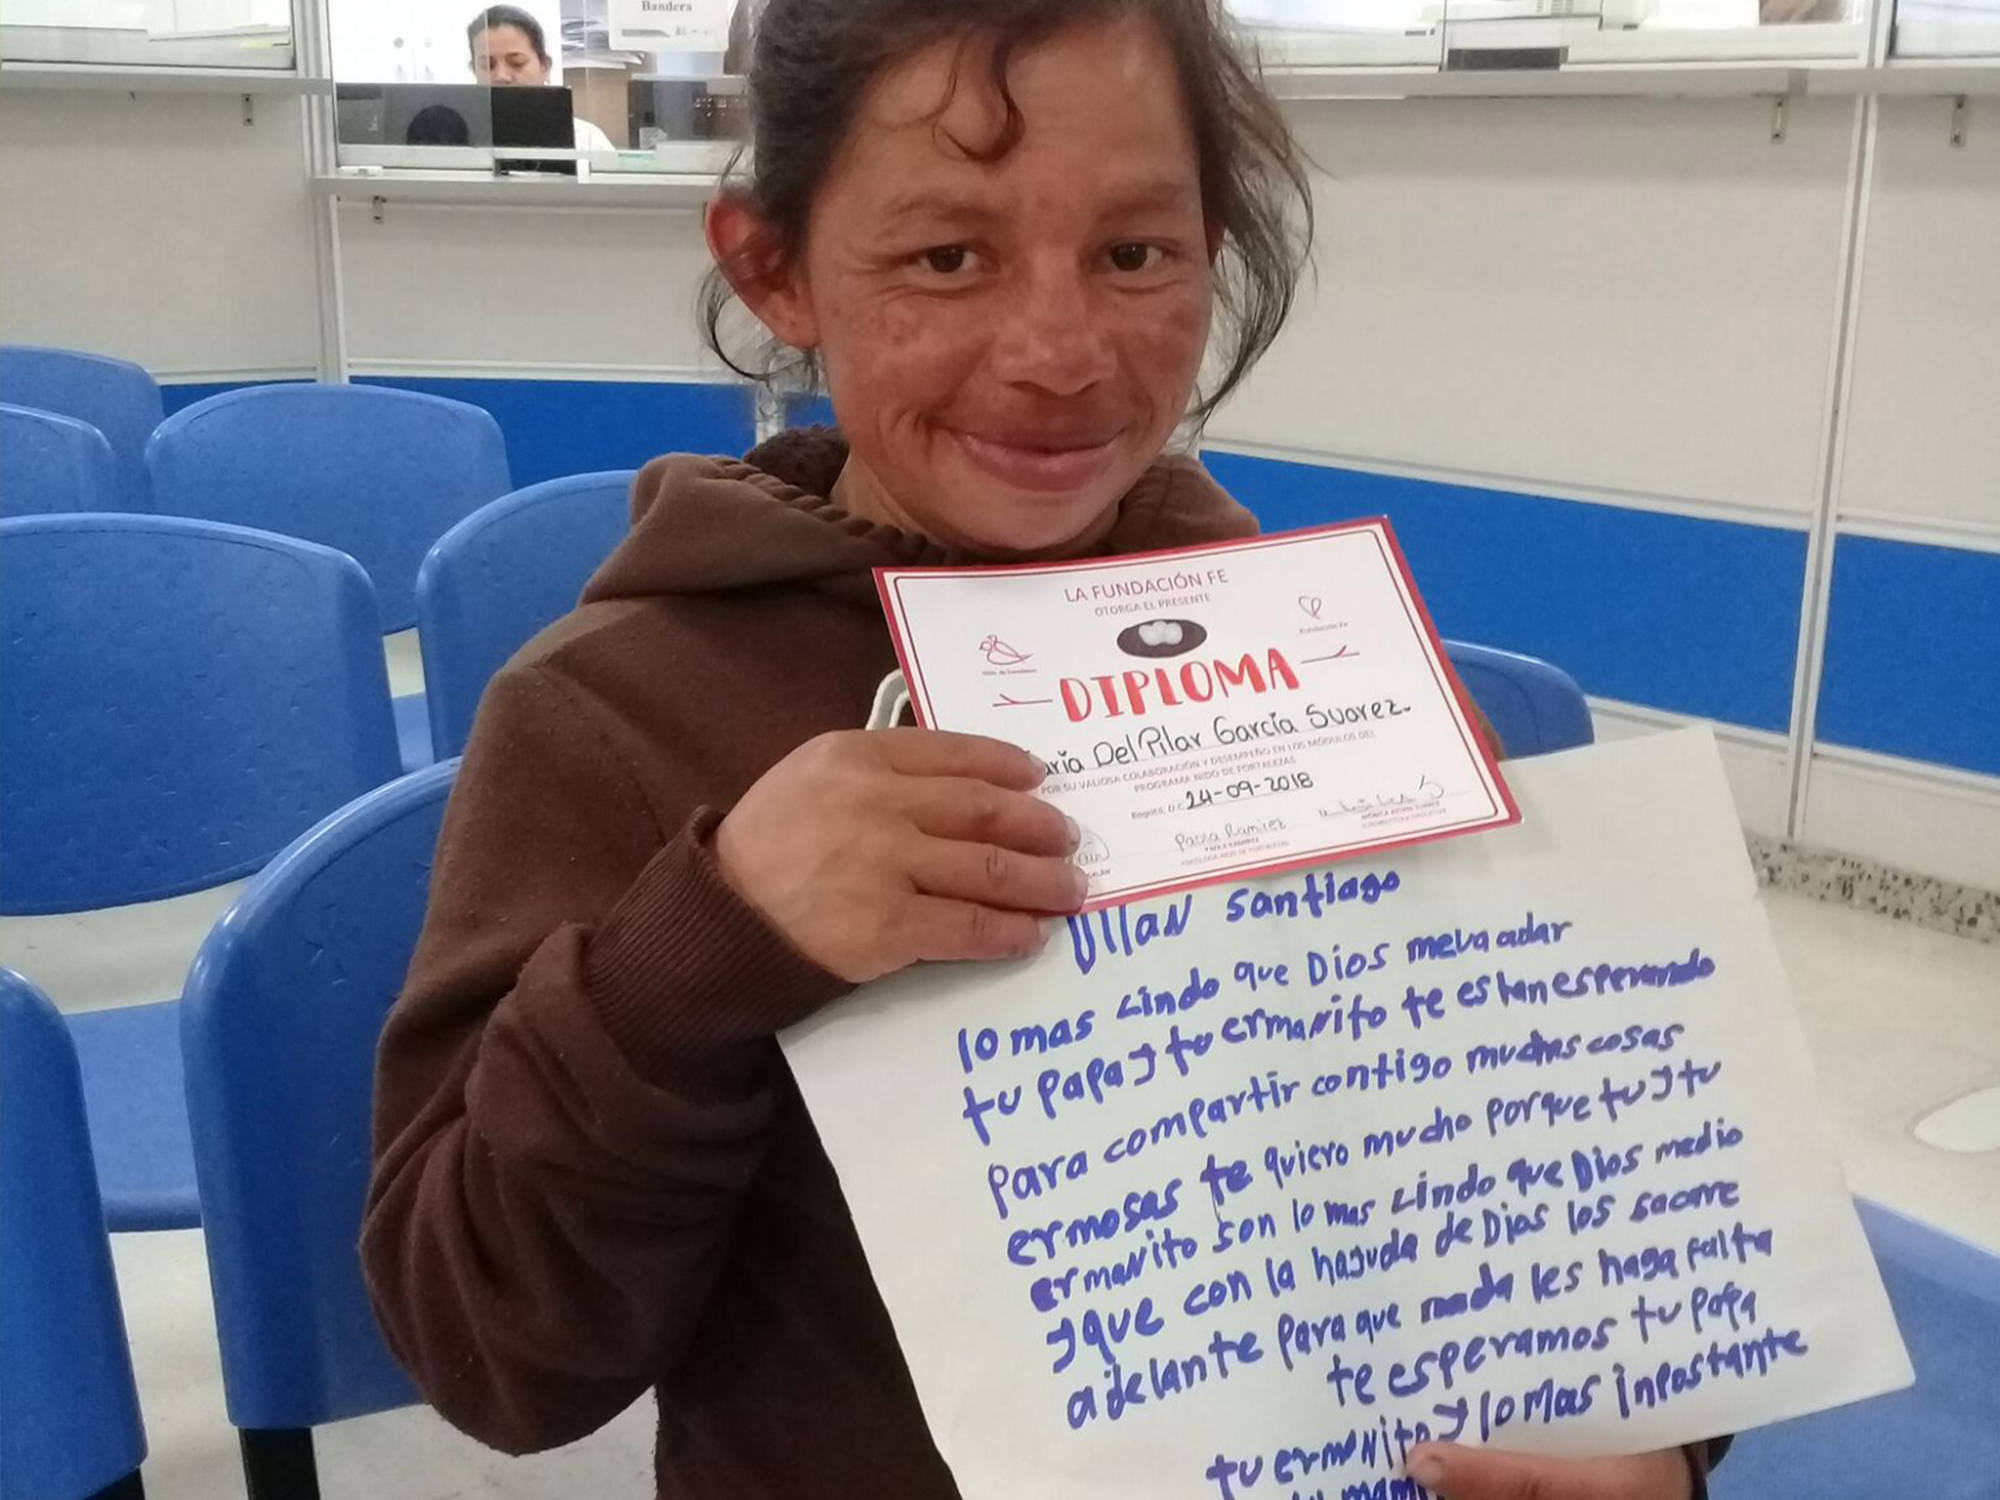 Bandera
LA FUNDACIÓN FE
OTORGA EL PRESENTE
Fundación Fe
DIPLOMA
aría Del Pilar García Suarez.
POR SU VALIOSA COLABORACIÓN Y DESEMPEÑO EN LOS MÓDULOS DEL
PROGRAMA NIDO DE FORTALEZAS
Bogotá, D.C. 24-09-2018
Paola Ramirez
PAOLA RAMIREZ
PSICÓLOGA NIDO DE FORTALEZAS
Santiago
lo mas Lindo que Dios meva adar
tu papa y tu ermanito te estan esperando
para compartir contigo muchas cosas
ermosas te quiero mucho porque tu y tu
ermanito son lo mas Lindo que Dios medio
y que con la hayuda de Dios los sacare
adelante para que nada les haga falta
te esperamos tu papa
tu ermanito y lo mas inpostante